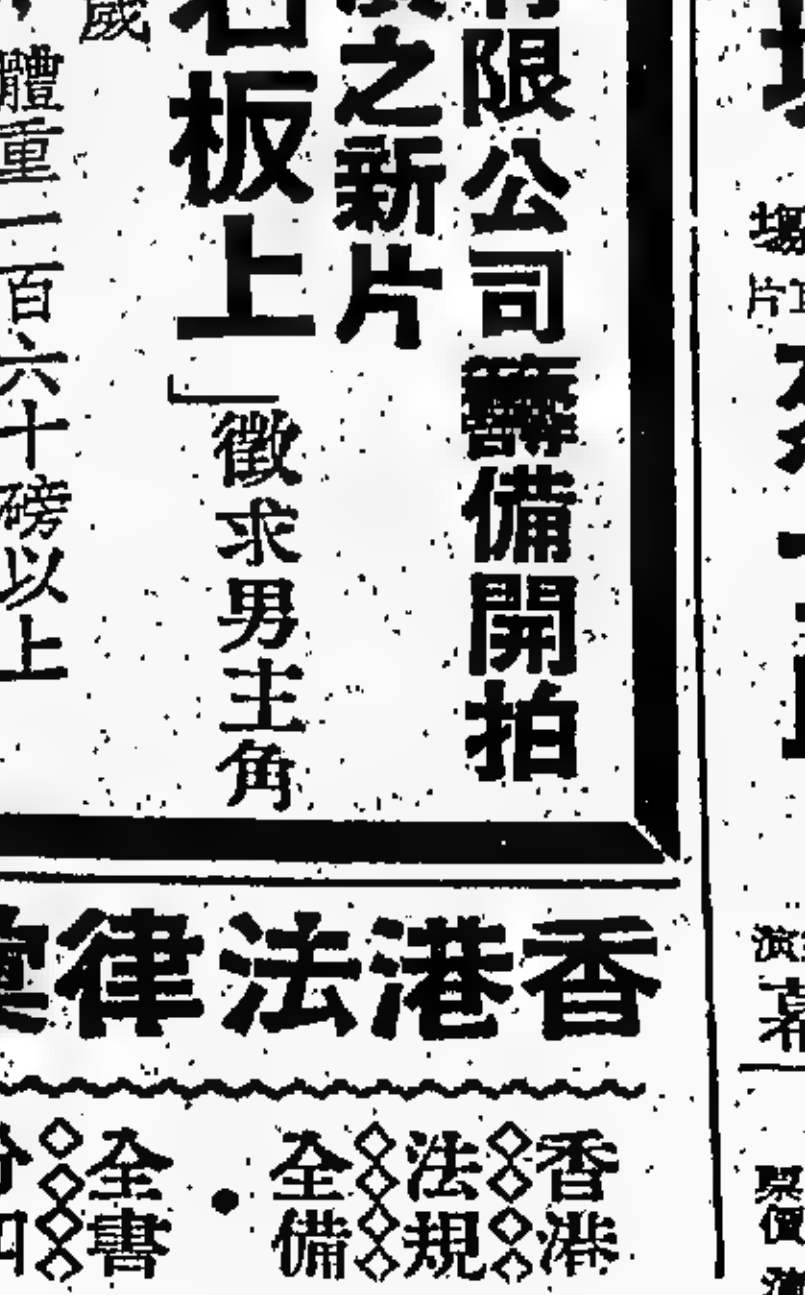 限公司籌備開拍
之新片
石板上」徵求男主角
歲
體重一百六十磅以上
香港法律彙
香港
法規
全備
•
全書
場
片
演
幕
票價